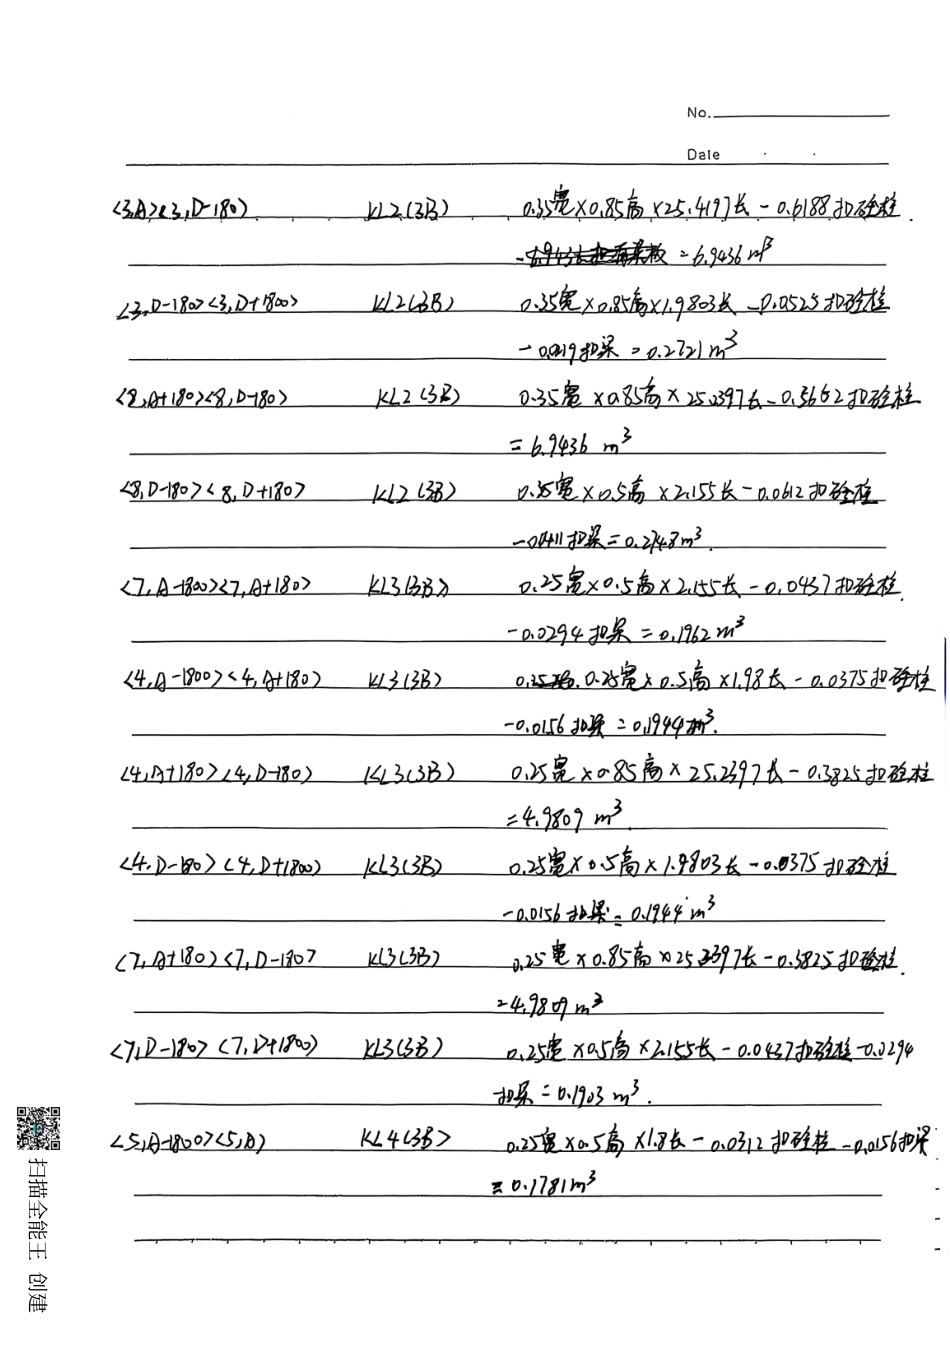 No.
Date
<3,A><3,D-180> KL2(3B) 0.35宽×0.85高×25.4197长-0.6188扣砼柱
=6.9436m³
<3,D-180><3,D+1800> KL2(3B) 0.35宽×0.85高×1.9803长-0.0525扣砼柱
-0.0219扣梁=0.2721m³
<8,A+180><8,D-180> KL2(3B) 0.35宽×0.85高×25.2397长-0.5662扣砼柱
=6.9436 m³
<8,D-180><8,D+180> KL2(3B) 0.35宽×0.5高×2.155长-0.0612扣砼柱
-0.0411扣梁=0.2748m³.
<7,A-1800><7,A+180> KL3(3B) 0.25宽×0.5高×2.155长-0.0437扣砼柱.
-0.0294扣梁=0.1962m³
<4,A-1800><4,A+180> KL3(3B) 0.25宽×0.5高×1.98长-0.0375扣砼柱
-0.0156扣梁=0.1944m³.
<4,A+180><4,D-180> KL3(3B) 0.25宽×0.85高×25.2397长-0.3825扣砼柱
=4.9809m³.
<4,D-180><4,D+1800> KL3(3B) 0.25宽×0.5高×1.9803长-0.0375扣砼柱
-0.0156扣梁=0.1944m³
<7,A+180><7,D-180> KL3(3B) 0.25宽×0.85高×25.2397长-0.3825扣砼柱.
=4.9809m³
<7,D-180><7,D+1800> KL3(3B) 0.25宽×0.5高×2.155长-0.0437扣砼柱-0.0294
扣梁=0.1903m³.
<5,A-1800><5,A> KL4(3B) 0.25宽×0.5高×1.8长-0.0312扣砼柱-0.0156扣梁
=0.1781m³
扫描全能王 创建